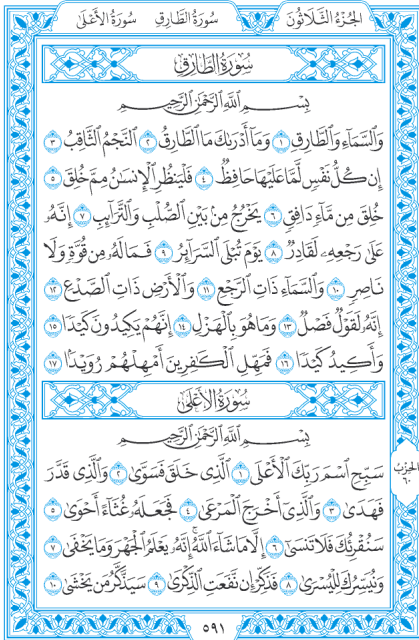 الجُزْءُ الثَّلَاثُونَ سُورَةُ الطَّارِقِ سُورَةُ الأَعْلَى
سُورَةُ الطَّارِقِ
بِسْمِ ٱللَّهِ ٱلرَّحْمَٰنِ ٱلرَّحِيمِ
وَٱلسَّمَآءِ وَٱلطَّارِقِ ١ وَمَآ أَدْرَىٰكَ مَا ٱلطَّارِقُ ٢ ٱلنَّجْمُ ٱلثَّاقِبُ ٣
إِن كُلُّ نَفْسٍ لَّمَّا عَلَيْهَا حَافِظٌ ٤ فَلْيَنظُرِ ٱلْإِنسَٰنُ مِمَّ خُلِقَ ٥
خُلِقَ مِن مَّآءٍ دَافِقٍ ٦ يَخْرُجُ مِنۢ بَيْنِ ٱلصُّلْبِ وَٱلتَّرَآئِبِ ٧ إِنَّهُۥ
عَلَىٰ رَجْعِهِۦ لَقَادِرٌ ٨ يَوْمَ تُبْلَى ٱلسَّرَآئِرُ ٩ فَمَا لَهُۥ مِن قُوَّةٍ وَلَا
نَاصِرٍ ١٠ وَٱلسَّمَآءِ ذَاتِ ٱلرَّجْعِ ١١ وَٱلْأَرْضِ ذَاتِ ٱلصَّدْعِ ١٢
إِنَّهُۥ لَقَوْلٌ فَصْلٌ ١٣ وَمَا هُوَ بِٱلْهَزْلِ ١٤ إِنَّهُمْ يَكِيدُونَ كَيْدًا ١٥
وَأَكِيدُ كَيْدًا ١٦ فَمَهِّلِ ٱلْكَٰفِرِينَ أَمْهِلْهُمْ رُوَيْدًۢا ١٧
سُورَةُ الأَعْلَى
بِسْمِ ٱللَّهِ ٱلرَّحْمَٰنِ ٱلرَّحِيمِ
سَبِّحِ ٱسْمَ رَبِّكَ ٱلْأَعْلَى ١ ٱلَّذِى خَلَقَ فَسَوَّىٰ ٢ وَٱلَّذِى قَدَّرَ
فَهَدَىٰ ٣ وَٱلَّذِىٓ أَخْرَجَ ٱلْمَرْعَىٰ ٤ فَجَعَلَهُۥ غُثَآءً أَحْوَىٰ ٥
سَنُقْرِئُكَ فَلَا تَنسَىٰٓ ٦ إِلَّا مَا شَآءَ ٱللَّهُ ۚ إِنَّهُۥ يَعْلَمُ ٱلْجَهْرَ وَمَا يَخْفَىٰ ٧
وَنُيَسِّرُكَ لِلْيُسْرَىٰ ٨ فَذَكِّرْ إِن نَّفَعَتِ ٱلذِّكْرَىٰ ٩ سَيَذَّكَّرُ مَن يَخْشَىٰ ١٠
الحِزْبُ
٦٠
٥٩١